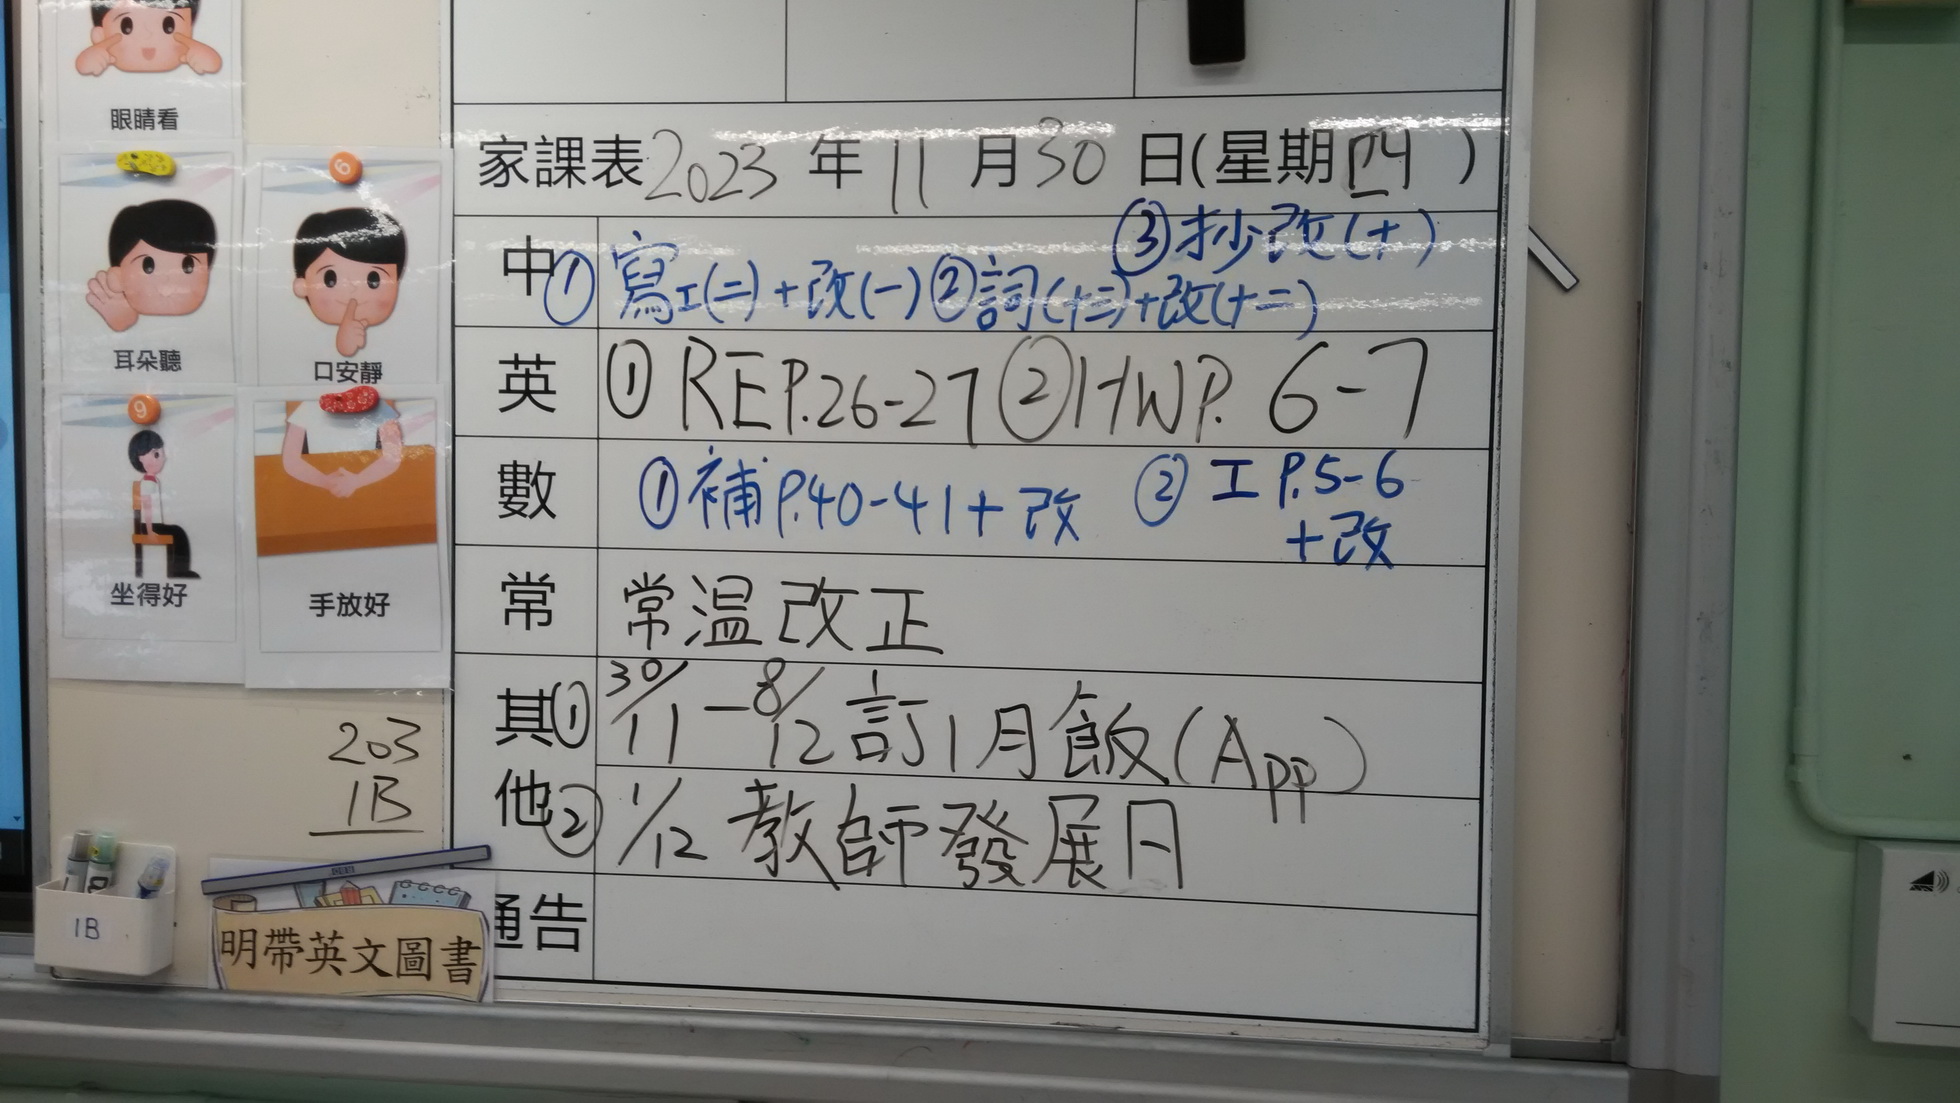 眼睛看
耳朵聽
6
口安靜
9
坐得好
手放好
203
1B
1B
明帶英文圖書
家課表 2023 年 11 月 30 日(星期四)
中 ① 寫工(二)+改(一) ② 詞(十三)+改(十二) ③ 抄改(十)
英 ① RE P.26-27 ② HW P. 6-7
數 ① 補 P.40-41+改 ② 工 P.5-6
+改
常 常温改正
其他 ① 30/11-8/12 訂1月飯(App)
② 1/12 教師發展日
通告